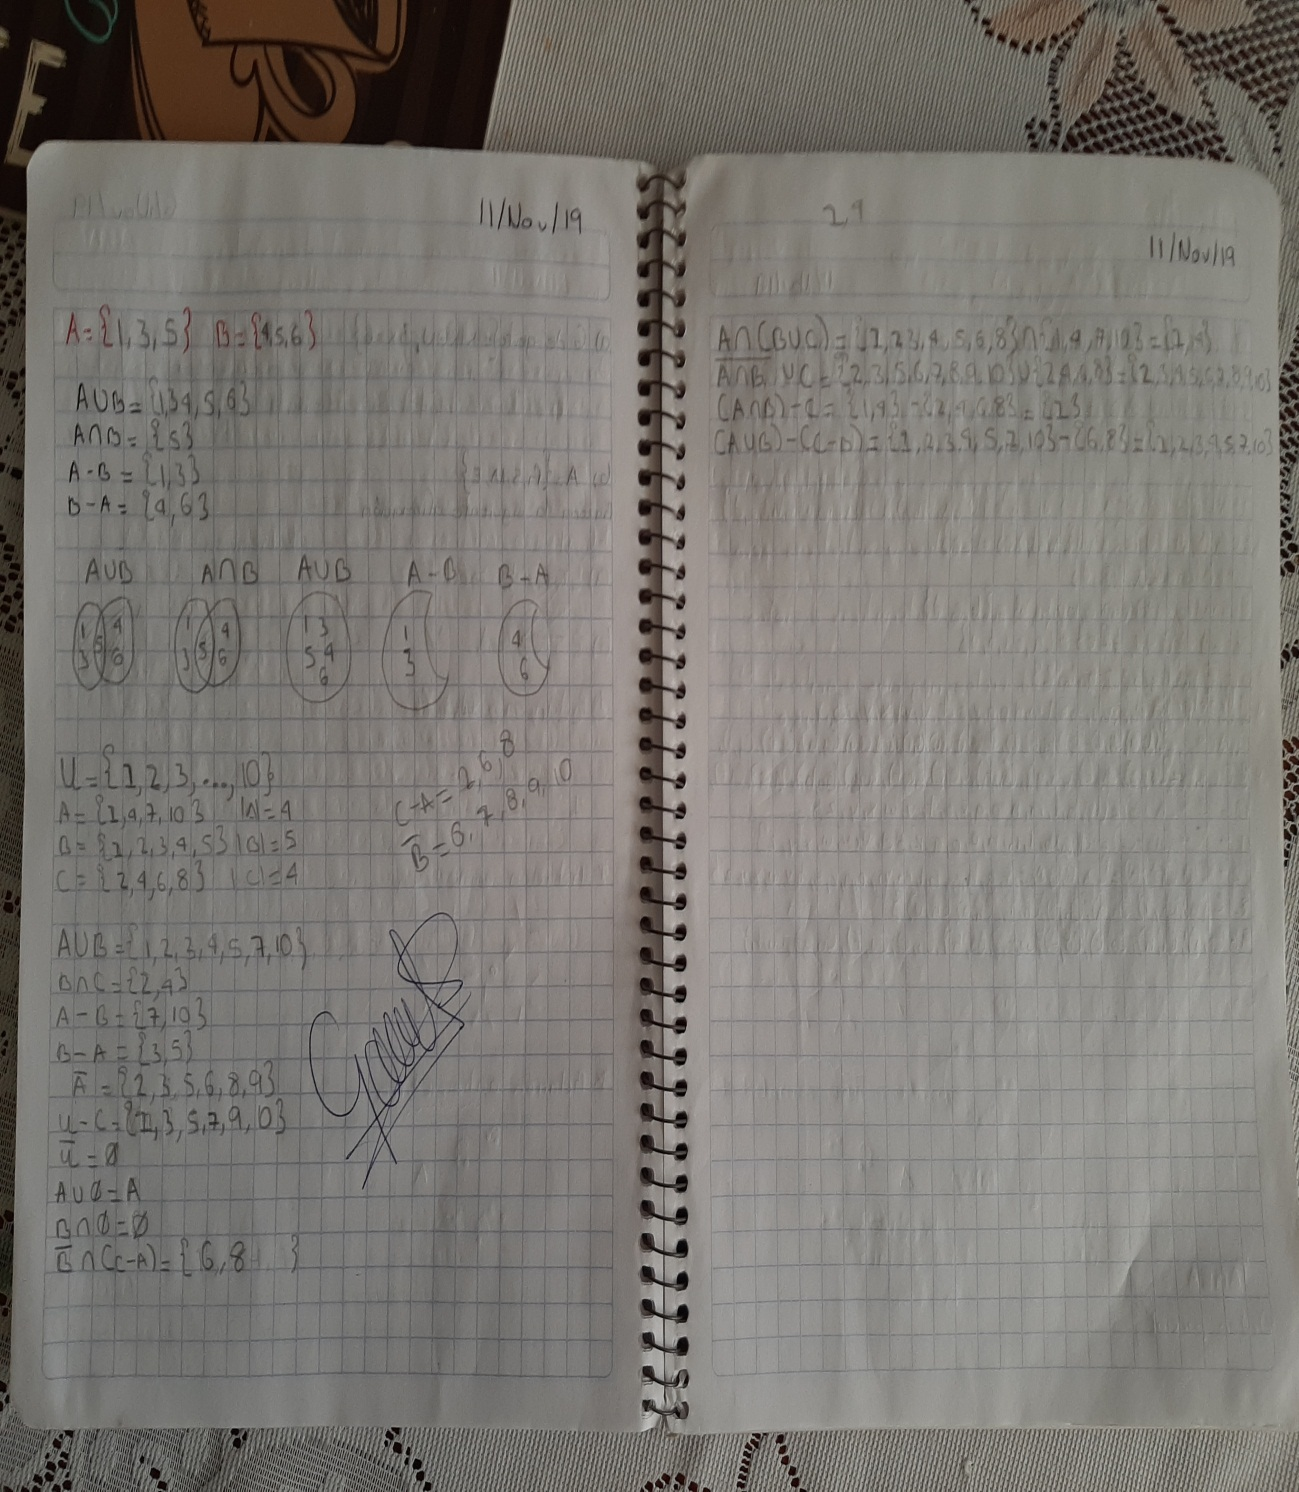 11/Nov/19
A={1,3,5} B={4,5,6}
A∪B={1,3,4,5,6}
A∩B={5}
A-B={1,3}
B-A={4,6}
A∪B A∩B A∪B A-B B-A
1 3 5 4 6
1 3 5 4 6
1 3 5 4 6
1 3
4 6
U={1,2,3,...,10}
A={1,4,7,10} |A|=4
B={1,2,3,4,5} |B|=5
C={2,4,6,8} |C|=4
C-A=2,6,8
B̅=6,7,8,9,10
A∪B={1,2,3,4,5,7,10}
B∩C={2,4}
A-B={7,10}
B-A={2,3,5}
A̅={2,3,5,6,8,9}
U-C={1,3,5,7,9,10}
U̅=∅
A∪∅=A
B∩∅=∅
B̅∩(C-A)={6,8 }
11/Nov/19
A∩(B∪C)={1,2,3,4,5,6,8}∩{1,4,7,10}={1,4}
A∩B ∪C={2,3,5,6,7,8,9,10}∪{2,4,6,8}={2,3,4,5,6,7,8,9,10}
(A∩B)-C={1,4}-{2,4,6,8}={1}
(A∪B)-(C-B)={1,2,3,4,5,7,10}-{6,8}={1,2,3,4,5,7,10}